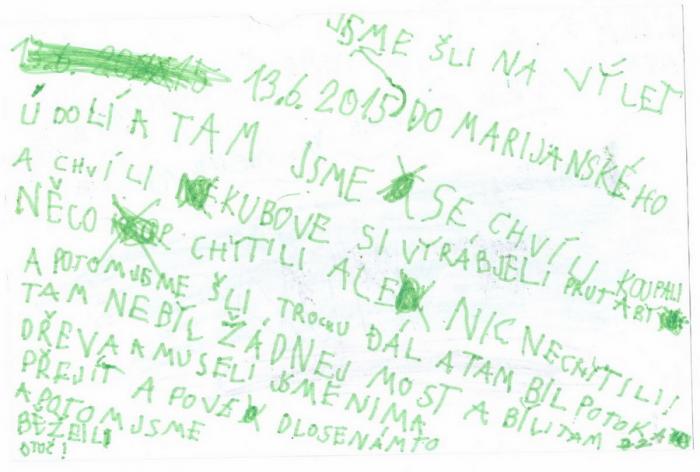 JSME ŠLI NA VÝLET
13.6.2015 DO MARIJANSKÉHO
ÚDOLÍ A TAM JSME SE CHVÍLI KOUPALI
A CHVÍLI KUBOVE SI VYRÁBJELI PRUT ABY
NĚCO CHYTILI ALE NIC NECHYTILI!
A POTOMJSME ŠLI TROCHU DÁL A TAM BIL POTOK A
TAM NEBYL ŽÁDNEJ MOST A BÍLI TAM
DŘEVA A MUSELI JSME NIMA
PŘEJÍT A POVE DLOSENÁMTO
A POTOMJSME
BĚŽELI
OTOČ!